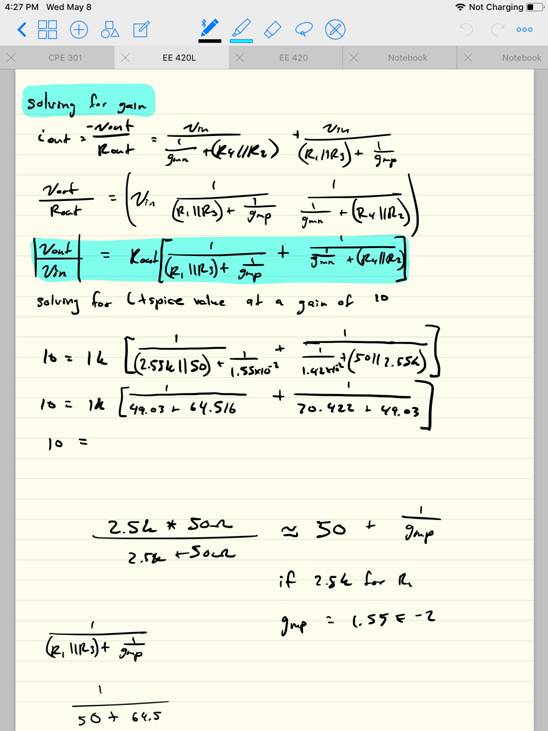 4:27 PM Wed May 8
Not Charging
CPE 301
EE 420L
EE 420
Notebook
Notebook
solving for gain
iout = -Vout/Rout = Vin/(1/gmn + (R4||R2)) + Vin/((R1||R3) + 1/gmp)
Vout/Rout = (Vin 1/((R1||R3) + 1/gmp) 1/(1/gmn + (R4||R2)))
|Vout/Vin| = Rout [1/((R1||R3) + 1/gmp) + 1/(1/gmn + (R4||R2))]
solving for LTspice value at a gain of 10
10 = 1k [1/((2.55k||50) + 1/1.55x10^-2) + 1/(1/1.42x10^-2 + (50||2.55k))]
10 = 1k [1/(49.03 + 64.516) + 1/(70.422 + 49.03)]
10 =
2.5k * 50Ω / 2.5k + 50Ω ≈ 50 + 1/gmp
if 2.5k for R1
gmp = 1.55E-2
1/((R1||R3) + 1/gmp)
1/(50 + 64.5)